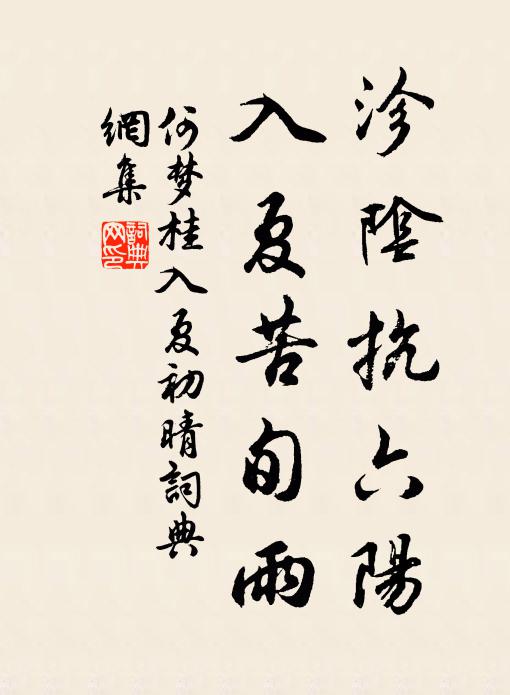 沴陰抗六陽
入夏苦旬雨
何梦桂入夏初晴詞典
網集
詞典
网印